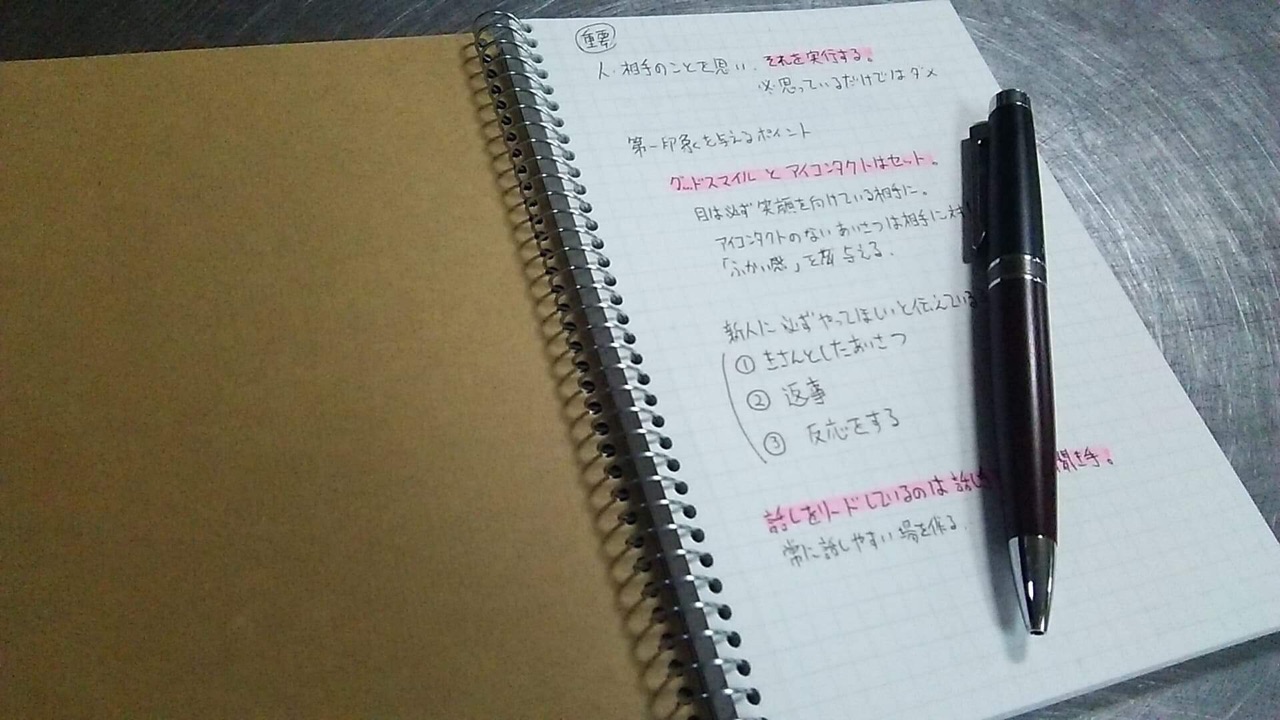 重要
人、相手のことを思い、それを実行する。
※思っているだけではダメ
第一印象を与えるポイント
グッドスマイル と アイコンタクトはセット。
目は必ず笑顔を向けている相手に。
アイコンタクトのない あいさつは相手に対
「ふかい感」を 与える。
新人に必ずやってほしいと伝えている
① きちんとしたあいさつ
② 返事
③ 反応をする
話しをリードしているのは 話し 聞き手。
常に話しやすい 場を作る。